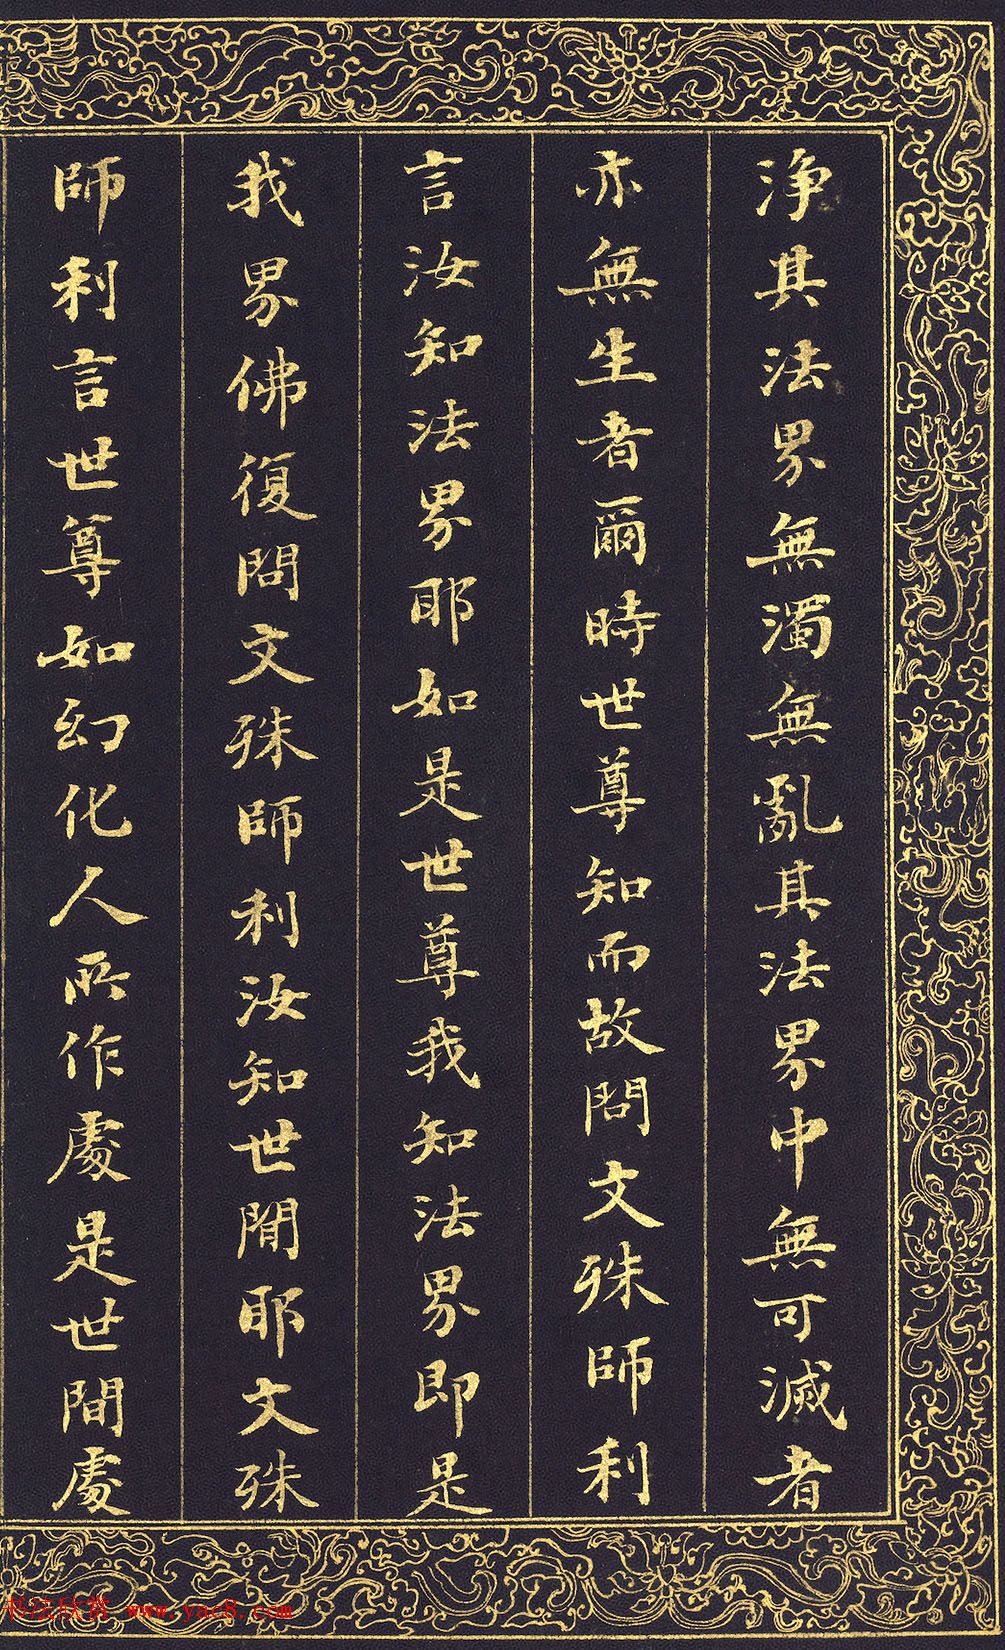 淨其法界無濁無亂其法界中無可滅者
亦無生者爾時世尊知而故問文殊師利
言汝知法界耶如是世尊我知法界即是
我界佛復問文殊師利汝知世間耶文殊
師利言世尊如幻化人所作處是世間處
书法欣赏 www.yac8.com